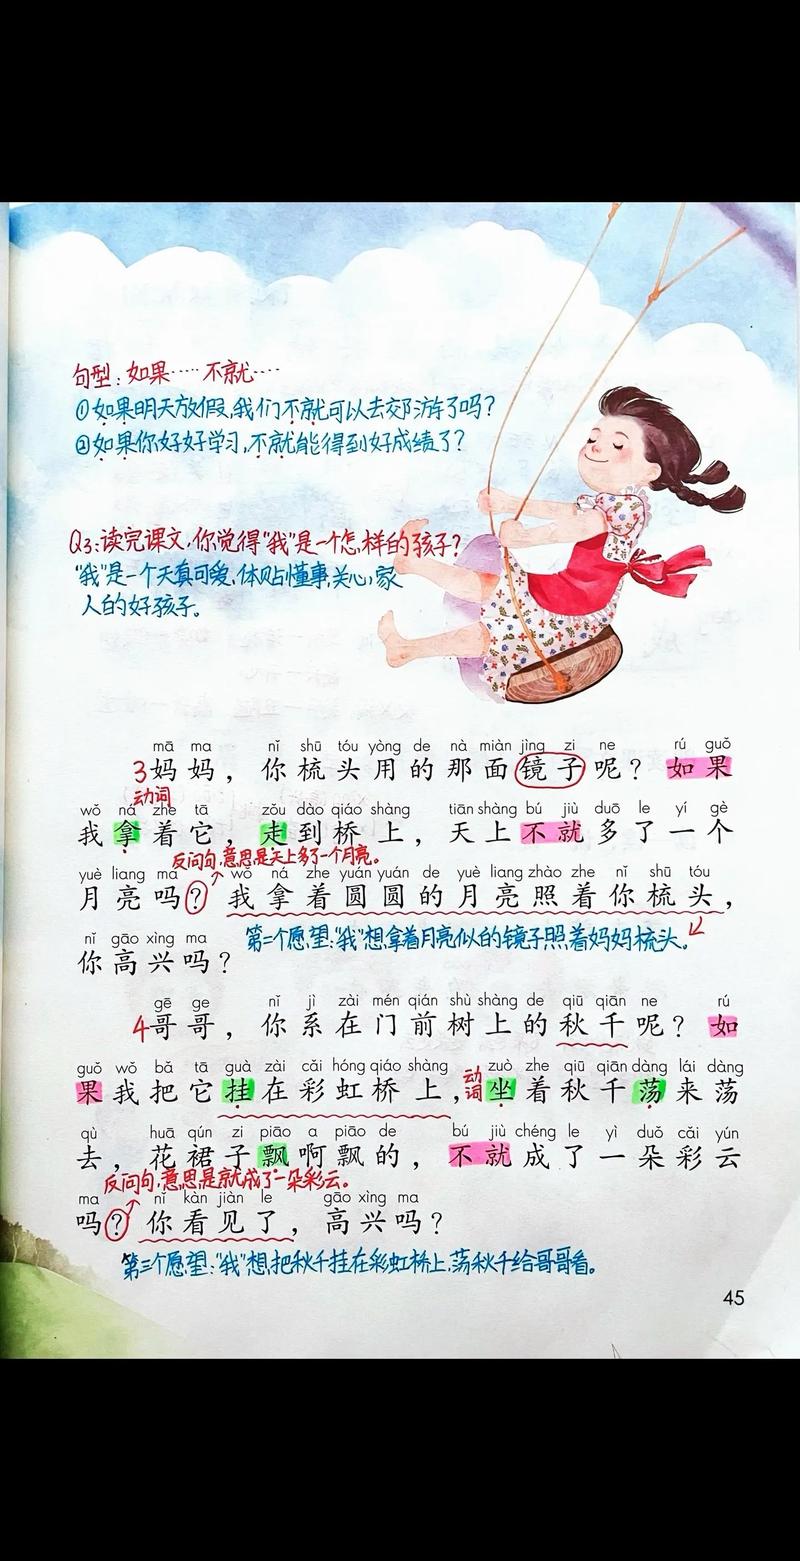 句型:如果……不就……
①如果明天放假,我们不就可以去郊游了吗?
②如果你好好学习,不就能得到好成绩了?
Q3:读完课文,你觉得“我”是一个怎样的孩子?
“我”是一个天真可爱、体贴懂事、关心家
人的好孩子。
mā ma nǐ shū tóu yòng de nà miàn jìng zi ne rú guǒ
3妈妈,你梳头用的那面镜子呢?如果
动词
wǒ ná zhe tā zǒu dào qiáo shàng tiān shàng bú jiù duō le yí gè
我拿着它,走到桥上,天上不就多了一个
反问句,意思是天上多了一个月亮。
yuè liang ma wǒ ná zhe yuán yuán de yuè liang zhào zhe nǐ shū tóu
月亮吗?我拿着圆圆的月亮照着你梳头,
nǐ gāo xìng ma
你高兴吗?
第二个愿望:“我”想拿着月亮似的镜子照着妈妈梳头。
gē ge nǐ jì zài mén qián shù shàng de qiū qiān ne rú
4哥哥,你系在门前树上的秋千呢?如
guǒ wǒ bǎ tā guà zài cǎi hóng qiáo shàng zuò zhe qiū qiān dàng lái dàng
果我把它挂在彩虹桥上,坐着秋千荡来荡
动词
qù huā qún zi piāo a piāo de bú jiù chéng le yì duǒ cǎi yún
去,花裙子飘啊飘的,不就成了一朵彩云
反问句,意思是就成了一朵彩云。
ma nǐ kàn jiàn le gāo xìng ma
吗?你看见了,高兴吗?
第三个愿望:“我”想把秋千挂在彩虹桥上,荡秋千给哥哥看。
45